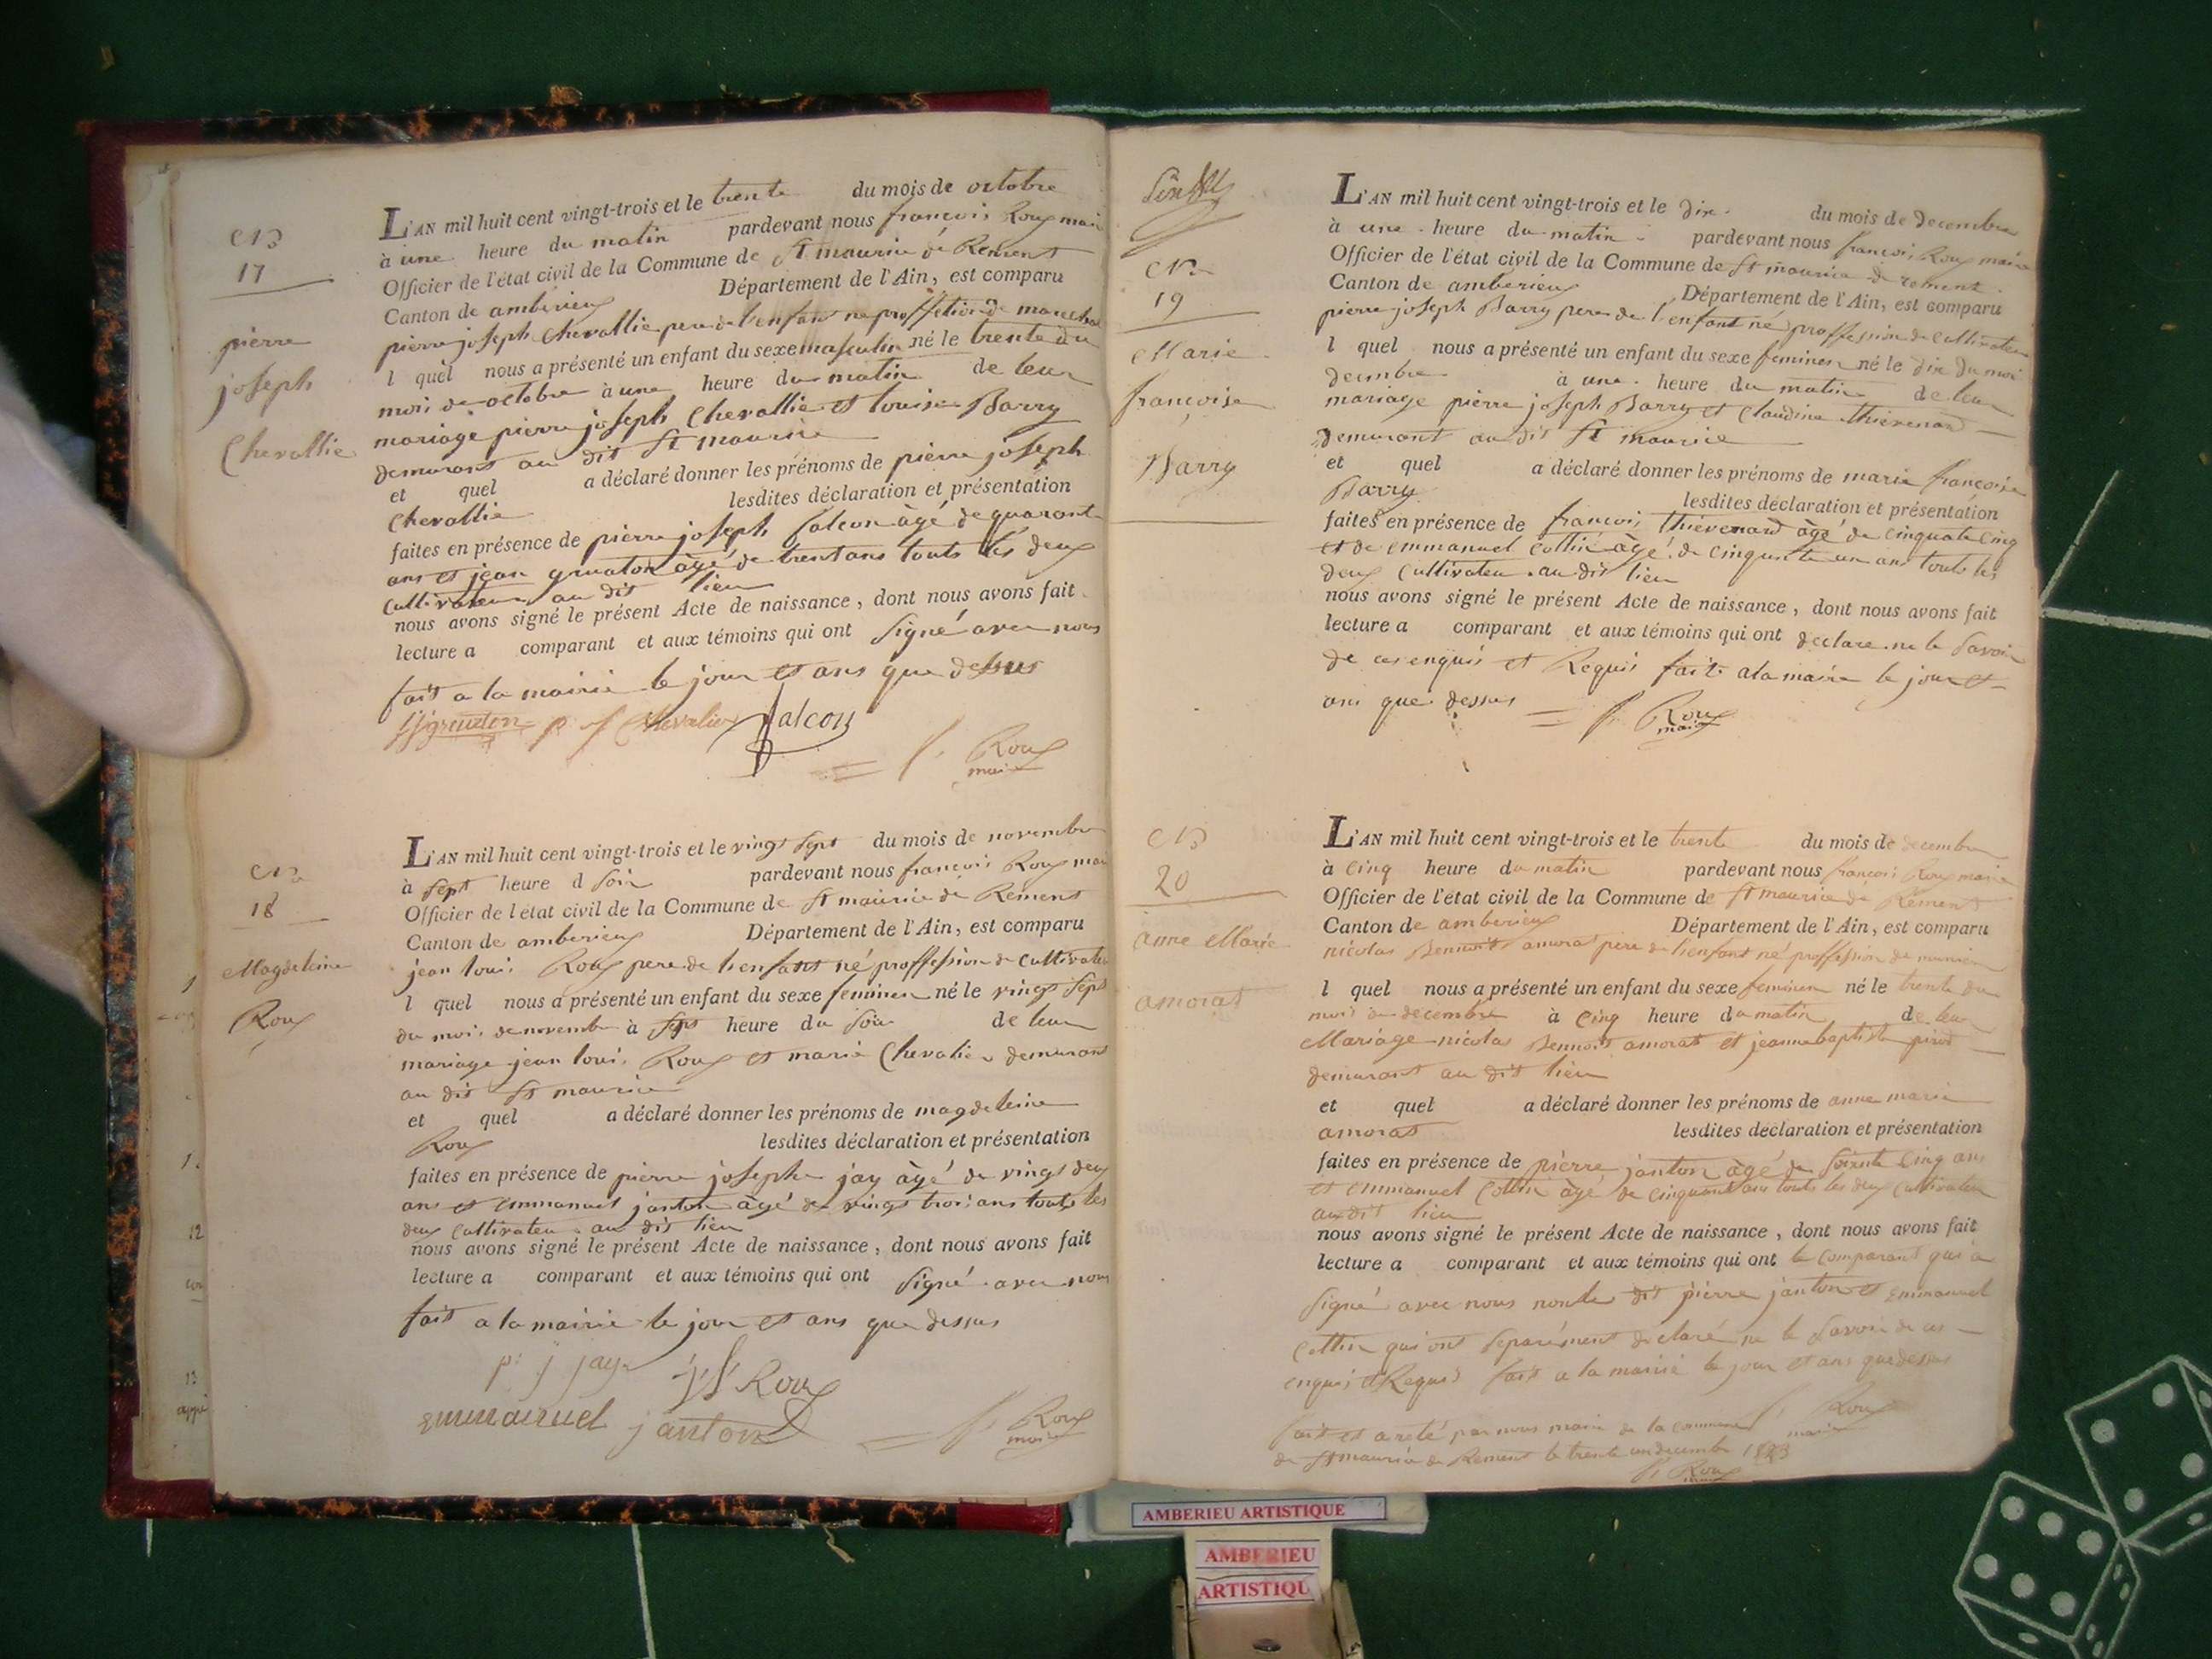 N°
17
pierre
joseph
Chevallie
L'AN mil huit cent vingt-trois et le trente du mois de octobre
à une heure du matin pardevant nous francois Roux mair
Officier de l'état civil de la Commune de St maurice de Remens
Canton de amberieux Département de l'Ain, est comparu
pierre joseph Chevallie pere de l'enfant né proffession de marechal
l quel nous a présenté un enfant du sexe masculin né le trente du
mois de octobre à une heure du matin de leur
mariage pierre joseph Chevallie et louise Barry
demurans au dit St maurice
et quel a déclaré donner les prénoms de pierre joseph
Chevallie lesdites déclaration et présentation
faites en présence de pierre joseph falcon âgé de quarante
ans et jean gruaton âgé de trent ans touts les deux
Cultivateur au dit lieu
nous avons signé le présent Acte de naissance, dont nous avons fait
lecture a comparant et aux témoins qui ont signé avec nous
fait a la mairie le jour et ans que dessus
p j Chevalier falcon
f. Roux
maire
N°
18
Magdeleine
Roux
L'AN mil huit cent vingt-trois et le vingt sept du mois de novembre
à sept heure d soir pardevant nous francois Roux mai
Officier de l'état civil de la Commune de St maurice de Remens
Canton de amberieux Département de l'Ain, est comparu
jean loui. Roux pere de l'enfant né proffession de Cultivateu
l quel nous a présenté un enfant du sexe feminen né le vingt sept
du mois de novembre à sept heure du soir de leur
mariage jean loui. Roux et marie Chevalier demurans
au dit St maurice
et quel a déclaré donner les prénoms de magdeleine
Roux lesdites déclaration et présentation
faites en présence de pierre josephe jay âgé de vingt deux
ans et emmanuel janton âgé de vingt trois ans touts les
deux Cultivateu. au dit lieu
nous avons signé le présent Acte de naissance, dont nous avons fait
lecture a comparant et aux témoins qui ont signé avec nous
fait a la mairie le jour et ans que dessus
p. j jay j l Roux
emmanuel janton
f. Roux
maire
N°
19
Marie
françoise
Barry
L'AN mil huit cent vingt-trois et le dix. du mois de decembre
à une heure du matin pardevant nous francois Roux maire
Officier de l'état civil de la Commune de St maurice de rement.
Canton de amberieux Département de l'Ain, est comparu
pierre joseph Barry pere de l'enfant né proffession de Cultivateu
l quel nous a présenté un enfant du sexe feminen né le dix du moi
decembre à une heure du matin de leur
mariage pierre joseph Barry et Claudine thievenard
demurant au dit St maurice
et quel a déclaré donner les prénoms de marie françoise
Barry lesdites déclaration et présentation
faites en présence de francois thievenard âgé de cinquate cinq
et de emmanuel Cottin âgé de cinquante un ans touts les
deux Cultivateu. au dit lieu
nous avons signé le présent Acte de naissance, dont nous avons fait
lecture a comparant et aux témoins qui ont declare ne le savoir
de ces enquis et Requis fait a la mairie le jour et
ans que dessus
f. Roux
maire
N°
20
anne Marie
amorat
L'AN mil huit cent vingt-trois et le trente du mois de decembre
à Cinq heure du matin pardevant nous francois Roux maire
Officier de l'état civil de la Commune de St maurice de Remens
Canton de amberieux Département de l'Ain, est comparu
nicolas Bennoit amorat pere de l'enfant né proffession de
l quel nous a présenté un enfant du sexe feminen né le trente du
mois de decembre à Cinq heure du matin de leur
Mariage nicolas Bennoit amorat et jeanne baptiste
demurant au dit lieu
et quel a déclaré donner les prénoms de anne marie
amorat lesdites déclaration et présentation
faites en présence de pierre janton âgé de soixente Cinq ans
et emmanuel Cottin âgé de cinquant ans touts les deux Cultivateu
au dit lieu
nous avons signé le présent Acte de naissance, dont nous avons fait
lecture a comparant et aux témoins qui ont le Comparant qui a
signé avec nous dit pierre janton et emmanuel
Cottin qui ont separément declaré ne le savoir de ces
enquis et Requis fait a la mairie le jour et ans que dessus
f. Roux
maire
fait et areté par nous maire de la Commune
de St maurice de Remens le trente un decembre 1823
f. Roux
maire
AMBERIEU ARTISTIQUE
AMBERIEU
ARTISTIQU